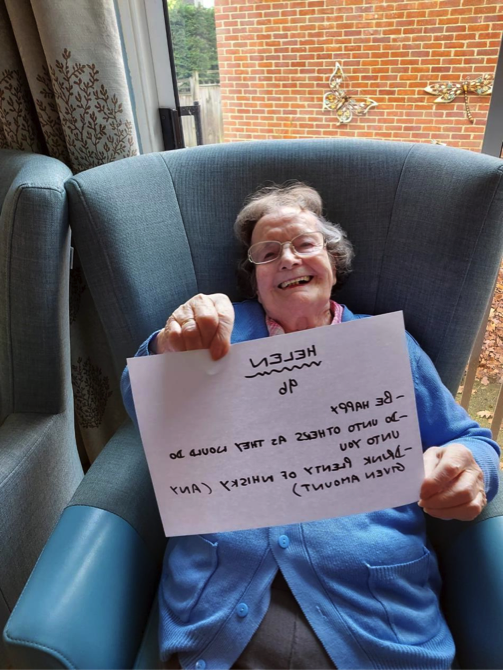 HELEN
96
- BE HAPPY
- DO UNTO OTHERS AS THEY WOULD DO
UNTO YOU
- DRINK PLENTY OF WHISKY (ANY
GIVEN AMOUNT)